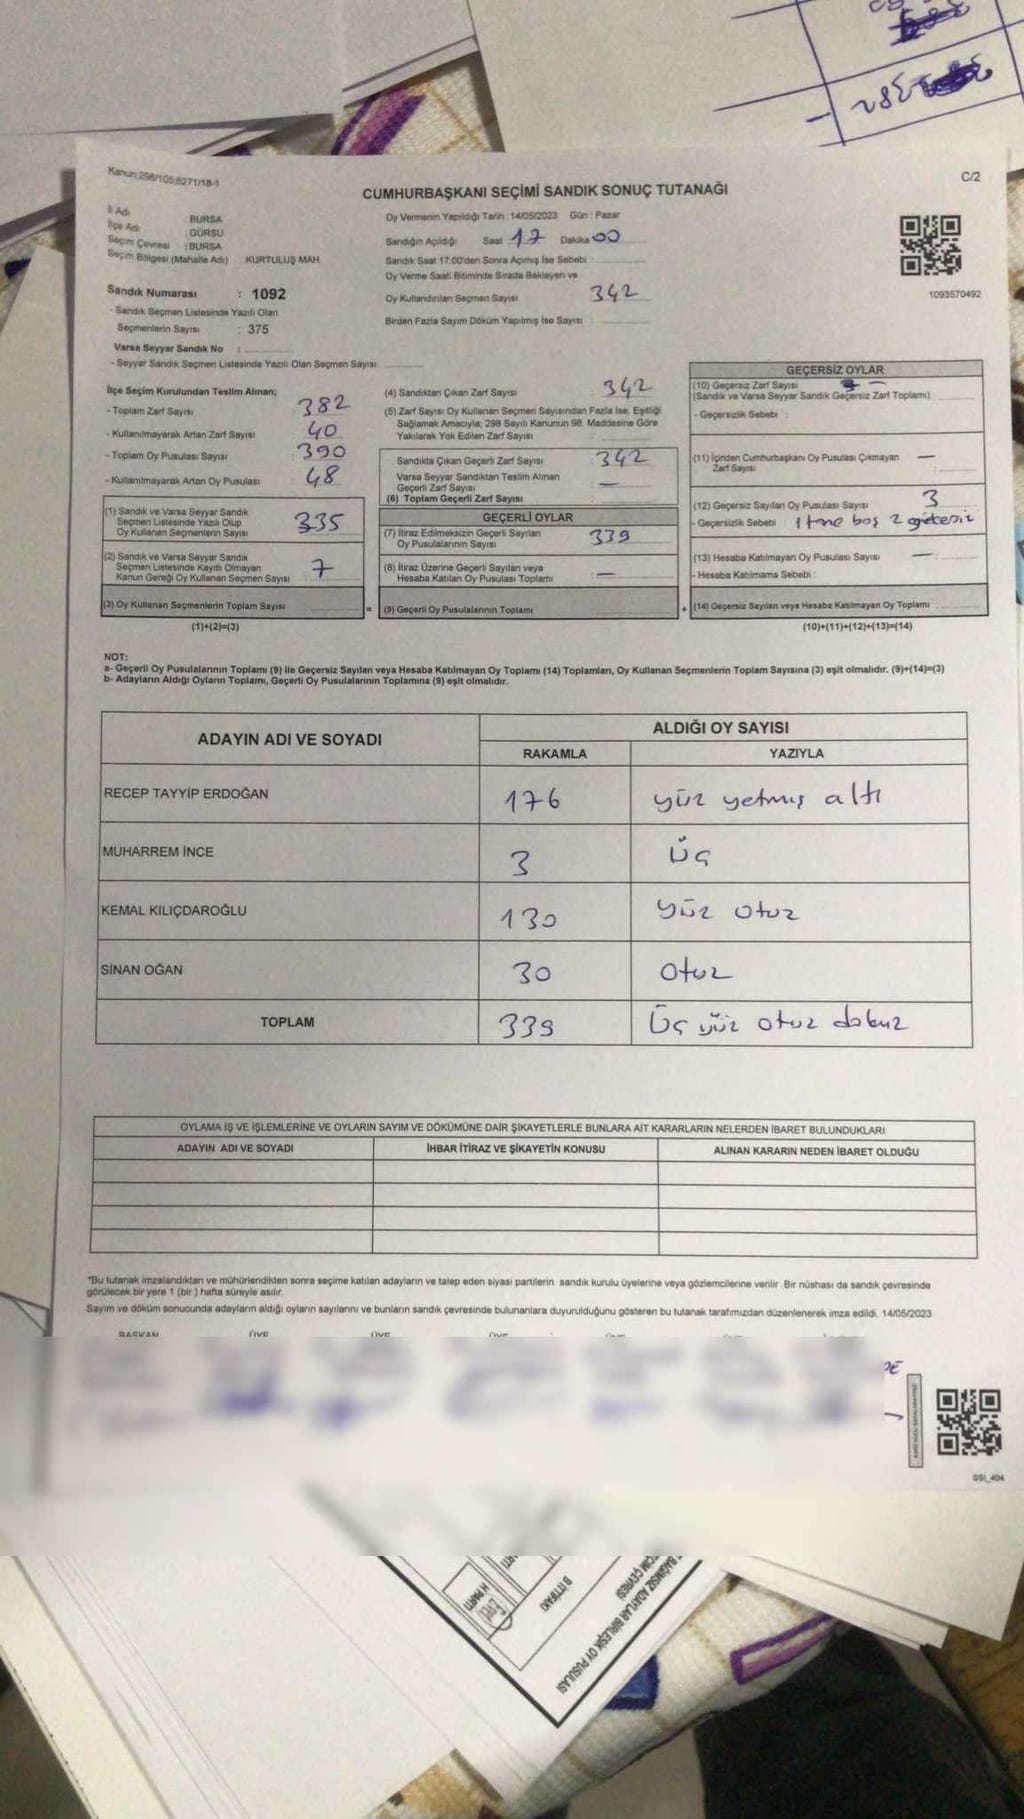 Kanun:298/105,6271/18-1
C/2
CUMHURBAŞKANI SEÇİMİ SANDIK SONUÇ TUTANAĞI
İl Adı : BURSA
İlçe Adı : GÜRSU
Seçim Çevresi : BURSA
Seçim Bölgesi (Mahalle Adı) : KURTULUŞ MAH
Sandık Numarası : 1092
- Sandık Seçmen Listesinde Yazılı Olan
Seçmenlerin Sayısı : 375
Varsa Seyyar Sandık No :
- Seyyar Sandık Seçmen Listesinde Yazılı Olan Seçmen Sayısı
Oy Vermenin Yapıldığı Tarih : 14/05/2023 Gün : Pazar
Sandığın Açıldığı Saat 17 Dakika 00
Sandık Saat 17:00'den Sonra Açımış İse Sebebi :
Oy Verme Saati Bitiminde Sırada Bekleyen ve
Oy Kullandırılan Seçmen Sayısı 342
Birden Fazla Sayım Döküm Yapılmış İse Sayısı :
1093570492
İlçe Seçim Kurulundan Teslim Alınan;
- Toplam Zarf Sayısı 382
- Kullanılmayarak Artan Zarf Sayısı 40
- Toplam Oy Pusulası Sayısı 390
- Kullanılmayarak Artan Oy Pusulası 48
(1) Sandık ve Varsa Seyyar Sandık
Seçmen Listesinde Yazılı Olup
Oy Kullanan Seçmenlerin Sayısı 335
(2) Sandık ve Varsa Seyyar Sandık
Seçmen Listesinde Kayıtlı Olmayan
Kanun Gereği Oy Kullanan Seçmen Sayısı 7
(3) Oy Kullanan Seçmenlerin Toplam Sayısı
(1)+(2)=(3)
(4) Sandıktan Çıkan Zarf Sayısı 342
(5) Zarf Sayısı Oy Kullanan Seçmen Sayısından Fazla İse, Eşitliği
Sağlamak Amacıyla; 298 Sayılı Kanunun 98. Maddesine Göre
Yakılarak Yok Edilen Zarf Sayısı :
Sandıkta Çıkan Geçerli Zarf Sayısı : 342
Varsa Seyyar Sandıktan Teslim Alınan
Geçerli Zarf Sayısı : —
(6) Toplam Geçerli Zarf Sayısı :
GEÇERLİ OYLAR
(7) İtiraz Edilmeksizin Geçerli Sayılan
Oy Pusulalarının Sayısı : 339
(8) İtiraz Üzerine Geçerli Sayılan veya
Hesaba Katılan Oy Pusulası Toplamı : —
= (9) Geçerli Oy Pusulalarının Toplamı
GEÇERSİZ OYLAR
(10) Geçersiz Zarf Sayısı —
(Sandık ve Varsa Seyyar Sandık Geçersiz Zarf Toplamı)
- Geçersizlik Sebebi :
(11) İçinden Cumhurbaşkanı Oy Pusulası Çıkmayan
Zarf Sayısı : —
(12) Geçersiz Sayılan Oy Pusulası Sayısı 3
- Geçersizlik Sebebi : 1 tane boş 2
(13) Hesaba Katılmayan Oy Pusulası Sayısı —
- Hesaba Katılmama Sebebi :
+ (14) Geçersiz Sayılan veya Hesaba Katılmayan Oy Toplamı
(10)+(11)+(12)+(13)=(14)
NOT:
a- Geçerli Oy Pusulalarının Toplamı (9) ile Geçersiz Sayılan veya Hesaba Katılmayan Oy Toplamı (14) Toplamları, Oy Kullanan Seçmenlerin Toplam Sayısına (3) eşit olmalıdır. (9)+(14)=(3)
b- Adayların Aldığı Oyların Toplamı, Geçerli Oy Pusulalarının Toplamına (9) eşit olmalıdır.
ADAYIN ADI VE SOYADI
ALDIĞI OY SAYISI
RAKAMLA YAZIYLA
RECEP TAYYİP ERDOĞAN 176 yüz yetmiş altı
MUHARREM İNCE 3 Üç
KEMAL KILIÇDAROĞLU 130 yüz otuz
SİNAN OĞAN 30 otuz
TOPLAM 339 Üç yüz otuz dokuz
OYLAMA İŞ VE İŞLEMLERİNE VE OYLARIN SAYIM VE DÖKÜMÜNE DAİR ŞİKAYETLERLE BUNLARA AİT KARARLARIN NELERDEN İBARET BULUNDUKLARI
ADAYIN ADI VE SOYADI
İHBAR İTİRAZ VE ŞİKAYETİN KONUSU
ALINAN KARARIN NEDEN İBARET OLDUĞU
*Bu tutanak imzalandıktan ve mühürlendikten sonra seçime katılan adayların ve talep eden siyasi partilerin sandık kurulu üyelerine veya gözlemcilerine verilir. Bir nüshası da sandık çevresinde
görülecek bir yere 1 (bir ) hafta süreyle asılır.
Sayım ve döküm sonucunda adayların aldığı oyların sayılarını ve bunların sandık çevresinde bulunanlara duyurulduğunu gösteren bu tutanak tarafımızdan düzenlenerek imza edildi. 14/05/2023
BAŞKAN ÜYE ÜYE
SSİ_404
BAĞIMSIZ ADAYLAR BİRLEŞİK OY PUSULASI
B İTTİFAKI
H PARTİ
Evet